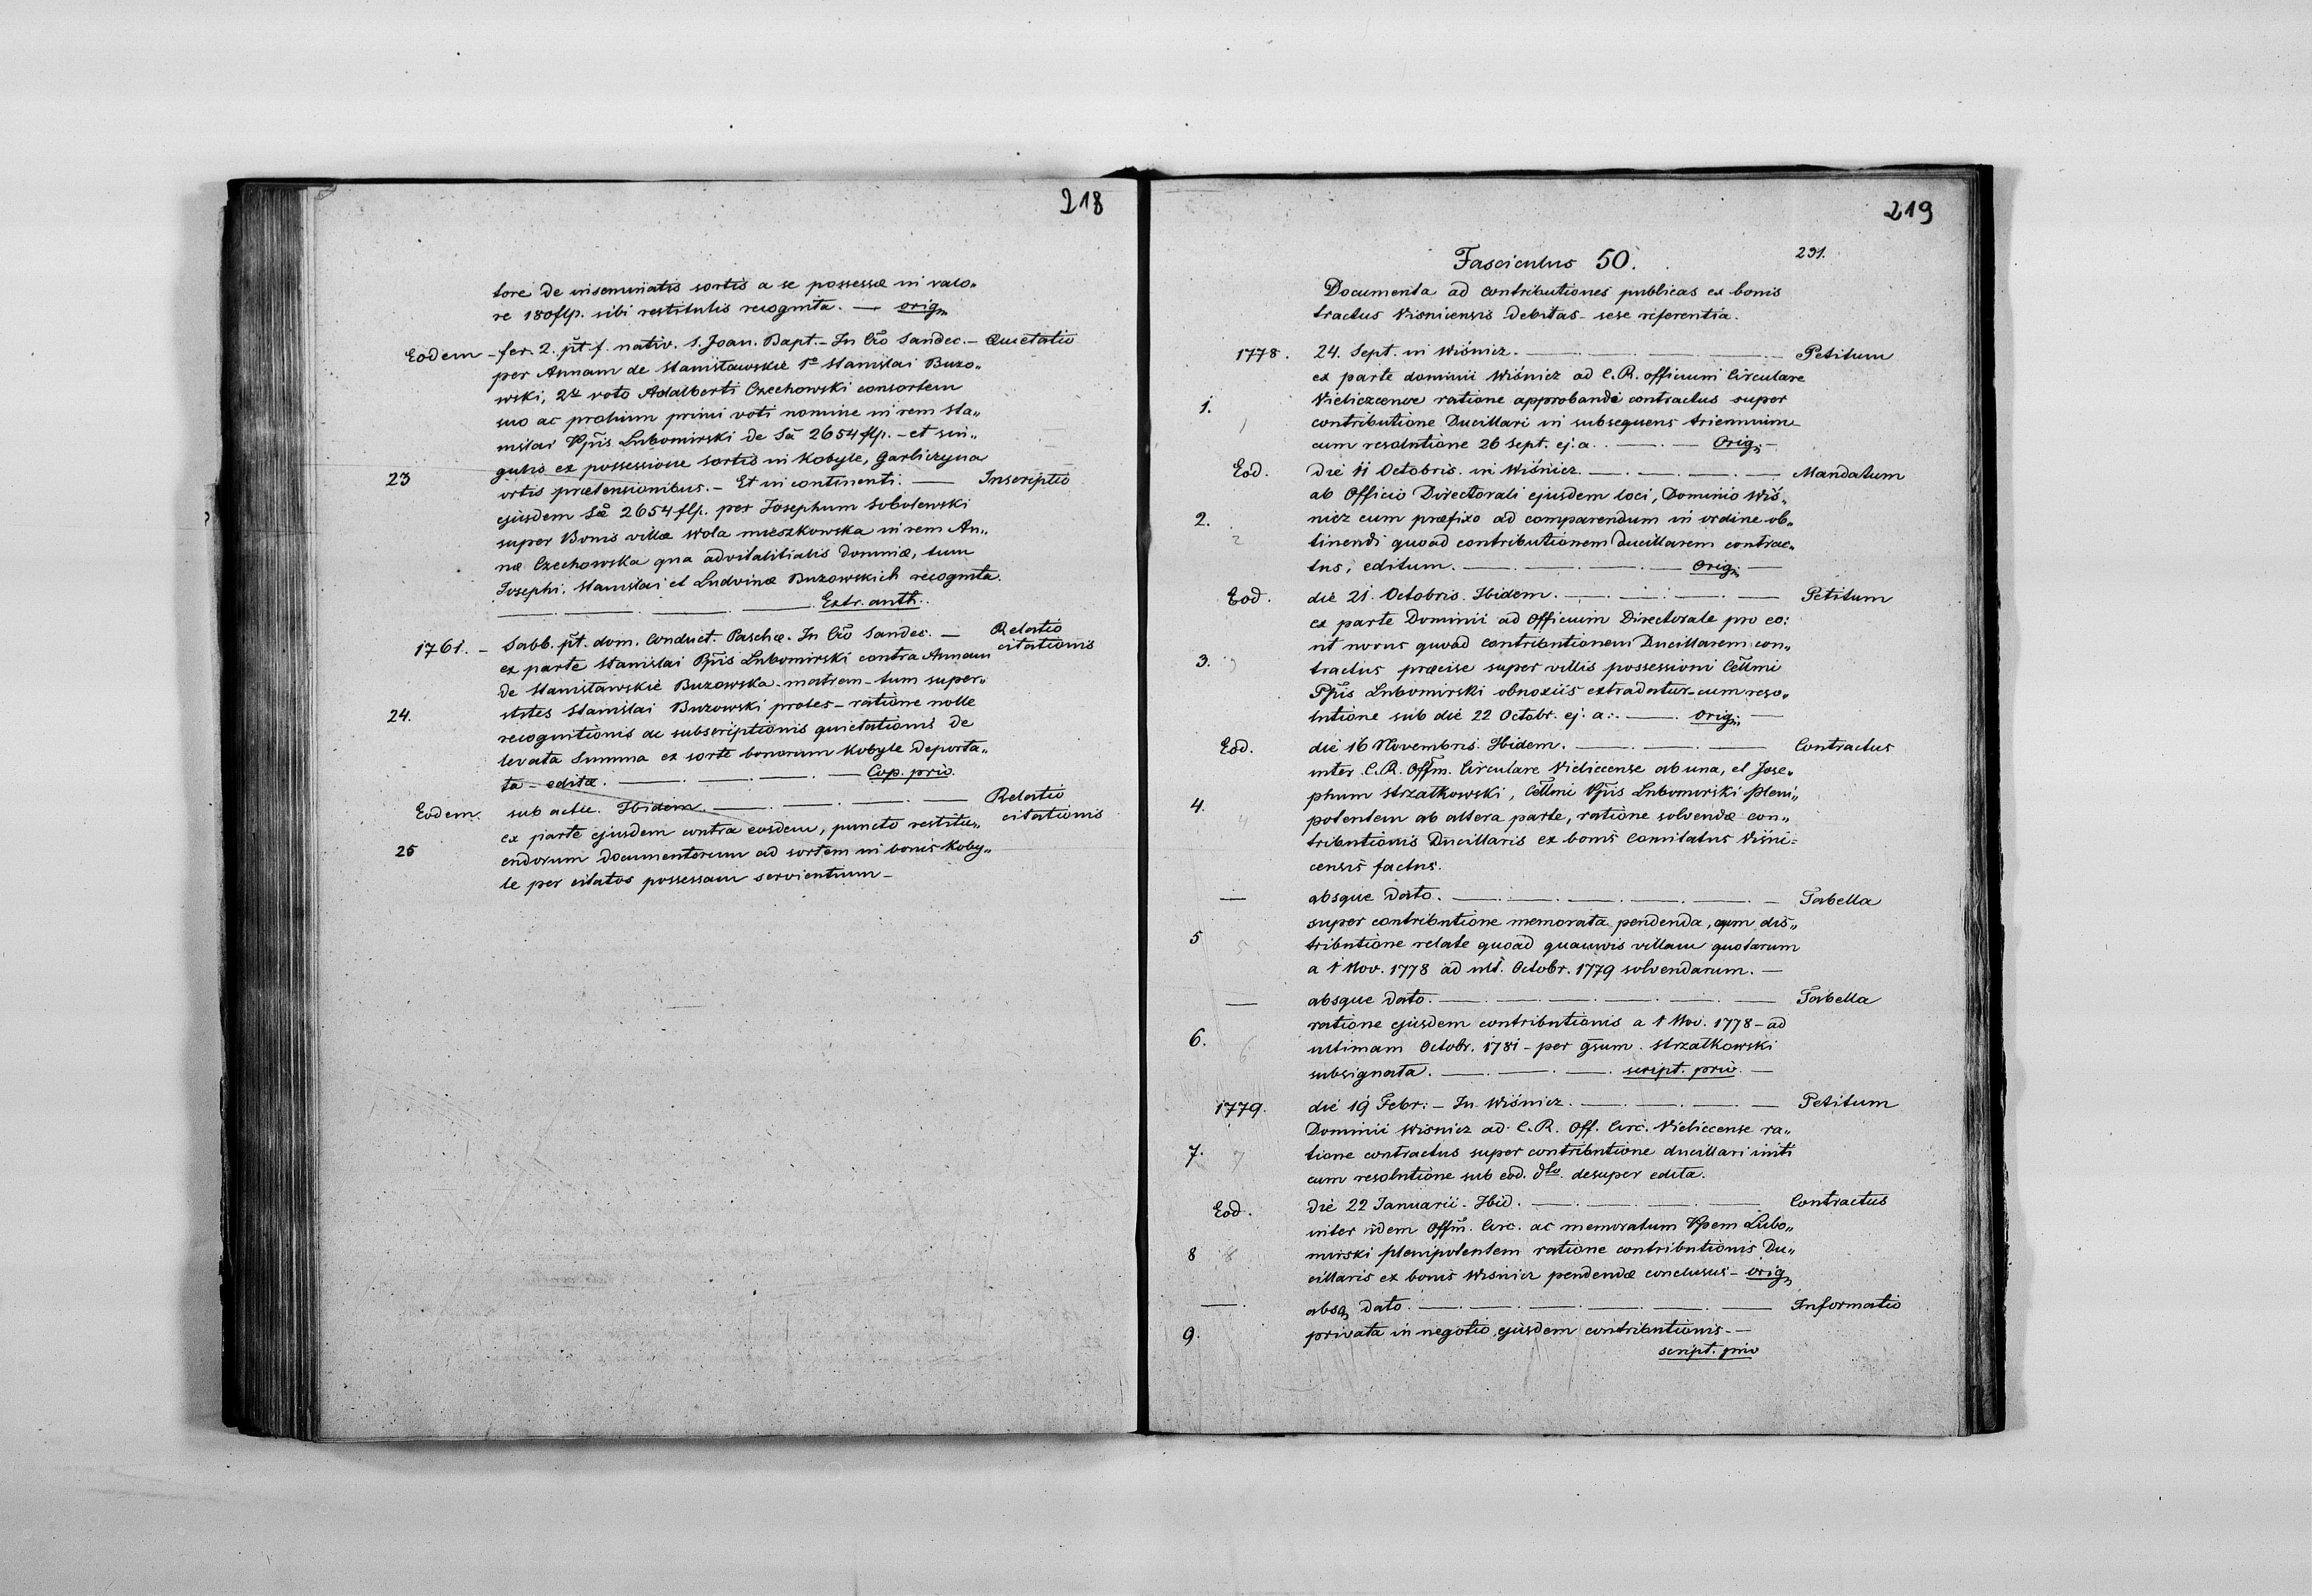 218
tore de inseminatis sortis a se possessæ in valo„
re 180 flp. sibi restitutis recognita. — orig.
Eodem – fer. 2. p̄t f. nativ. S. Joan. Bapt. – In C̄o Sandec. – Quietatio
per Annam de Stanisławskie 1º Stanislai Buzo„
wski, 2do voto Adalberti Czechowski consortem
suo ac prolium primi voti nomine in rem Sta„
nislai Lubomirski de S̄a 2654 flp. – et sin„
gulis ex possessione sortis in Kobyle, Garliczyna
23 ortis prætensionibus. – Et in continenti. — Inscriptio
ejusdem S̄æ 2654 flp. per Josephum Sobolewski
super Bonis villæ Wola mieszkowska in rem An„
næ Czechowska qua advitalitialis dominæ, tum
Josephi, Stanislai et Ludvinæ Buzowskich recognita.
Extr. auth.
1761. – Sabb. p̄t. dom. Conduct. Paschæ. In C̄o Sandec. — Relatio
ex parte Stanislai P̄pis Lubomirski contra Annam citationis
de Stanisławskie Buzowska matrem – tum super„
stites Stanislai Buzowski proles – ratione nolle
24. recognitionis ac subscriptionis quietationis de
levata Summa ex sorte bonorum Kobyle deporta„
ta – editæ. — Cop. priv.
Eodem. sub actu. Ibidem. — Relatio
ex parte ejusdem contra eosdem, puncto restitu„ citationis
25 endorum documentorum ad sortem in bonis Koby„
le per citatos possessam servientium –
219
Fasciculus 50. 291.
Documenta ad contributiones publicas ex bonis
tractus Visnicensis debitas – sese referentia.
1778. 24. Sept. in Wiśnicz. — Petitum
ex parte dominii Wiśnicz ad C. R. officium Circulare
1. Vieliczcense ratione approbandi contractus super
1 contributione Ducillari in subsequens triennium
cum resolutione 26 Sept. ej. a. — Orig. –
Eod. die 11 Octobris. in Wiśnicz. — Mandatum
ab Officio Directorali ejusdem loci, Dominio Wiś„
2. nicz cum præfixo ad comparendum in ordine ob„
2 tinendi quoad contributionem ducillarem contrac„
tus, editum. — Orig. —
Eod. die 21. Octobris. Ibidem. — Petitum
ex parte Dominii ad Officium Directorale pro eo:
ut novus quoad contributionem Ducillarem con„
3. 3 tractus præcise super villis possessioni Cel̄lmi
P̄pis Lubomirski obnoxiis extradatur – cum reso„
lutione sub die 22 Octobr. ej. a. — Orig. —
Eod. die 16 Novembris. Ibidem. — Contractus
inter C. R. Off̄m. Circulare Vieliccense ab una, et Jose„
4. phum Strzałkowski, Cel̄lmi P̄pis Lubomirski pleni„
4 potentem ab altera parte, ratione solvendæ con„
tributionis Ducillaris ex bonis Comitatus Viśni=
censis factus.
— absque dato. — Tabella
super contributione memorata pendenda, cum dis„
5 5 tributione relate quoad quamvis villam quotarum
a 1 Nov. 1778 ad ult. Octobr. 1779 solvendarum. —
— absque dato. — Tabella
ratione ejusdem contributionis a 1 Nov. 1778 – ad
6. 6 ultimam Octobr. 1781 – per ḡsum. Strzałkowski
subsignata. — script. priv. —
1779. die 19 Febr: – In Wiśnicz. — Petitum
Dominii Wisnicz ad C. R. Off. Circ. Vieliccense ra„
7. 7 tione contractus super contributione ducillari initi
cum resolutione sub eod. dto. desuper edita.
Eod. die 22 Januarii. Ibid. — Contractus
inter idem Off̄m. Circ. ac memoratum P̄pem Lubo„
8 8 mirski plenipotentem ratione contributionis Du„
cillaris ex bonis Wisnicz pendendæ conclusus – Orig.
— absq. dato. — Informatio
9. privata in negotio ejusdem contributionis. —
script. priv